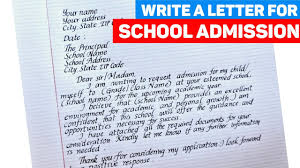 WRITE A LETTER FOR
SCHOOL ADMISSION
Your name
Your address
City, State ZIP
Date:
The Principal
School Name
School Address
City, State ZIP Code
Dear sir/Madam,
I am writing to request admission for my child/
myself to (grade/Class Name) at your esteemed school,
(School name) for the upcoming academic year.
I believe that (School Name) provides an excellent
environment for academic and personal growth. I am
confident that this school will offer the guidance and
opportunities necessary for success.
I have attached all the required documents for your
consideration. Kindly let me know if any further information
is needed.
Thank you for considering my application. I look forward
positive response.